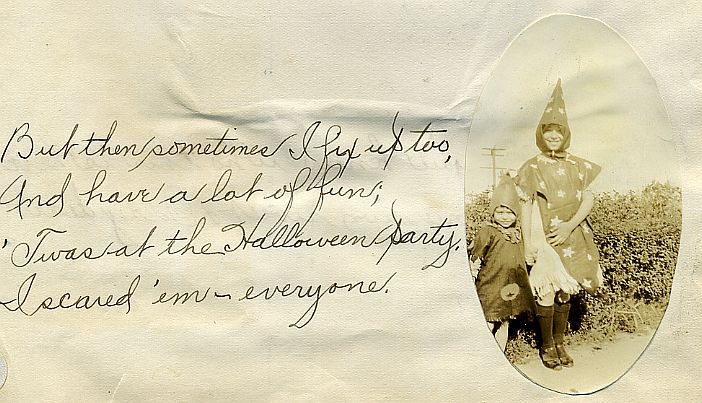 But then sometimes I fix up too,
And have a lot of fun;
'Twas at the Halloween party,
I scared 'em - everyone.